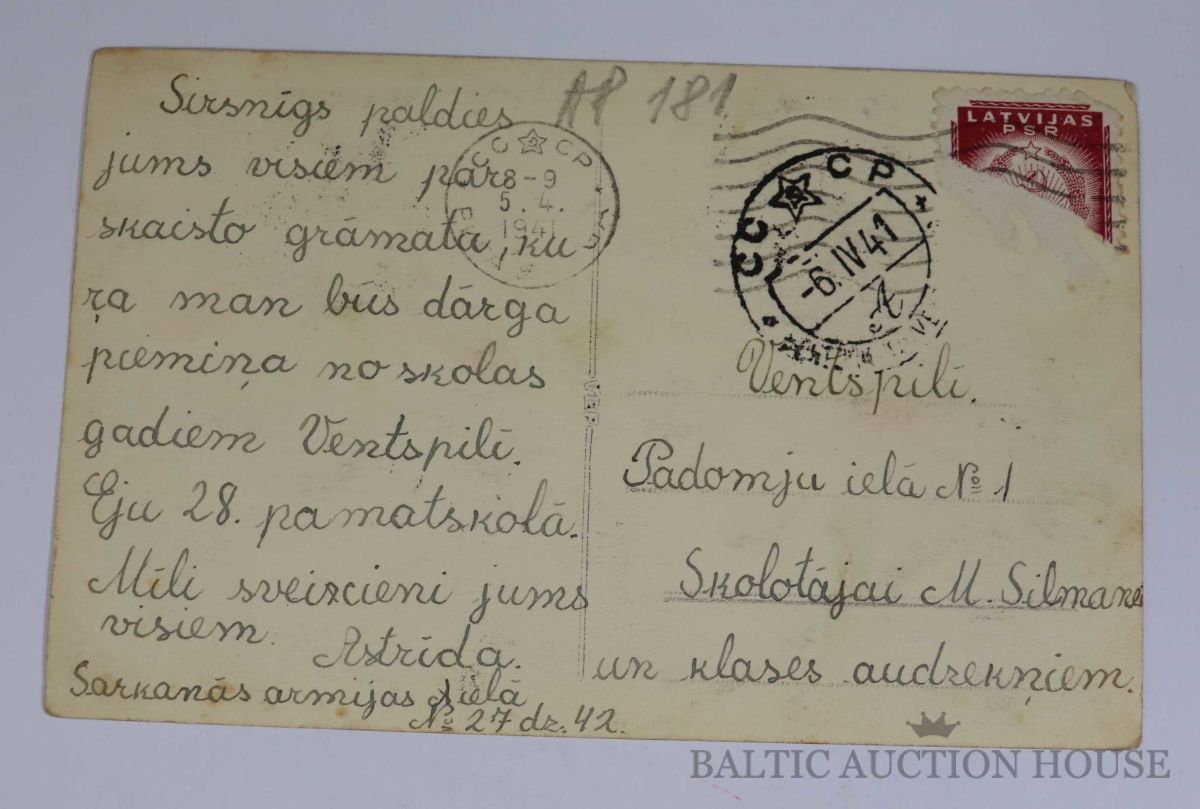 Sirsnīgs paldies
jums visiem par
skaisto grāmatu, ku
ŗa man būs dārga
piemiņa no skolas
gadiem Ventspilī.
Eju 28. pamatskolā.
Mīļi sveizcieni jums
visiem.
Astrīda.
Sarkanās armijas ielā
№ 27 dz. 42.
AP 181
CCCP
8-9
5.4.
1941
LATVIJAS
PSR
CCCP
-6.IV 41
Ventspilī.
Padomju ielā № 1
Skolotājai M. Silmanei
un klases audzekņiem.
BALTIC AUCTION HOUSE